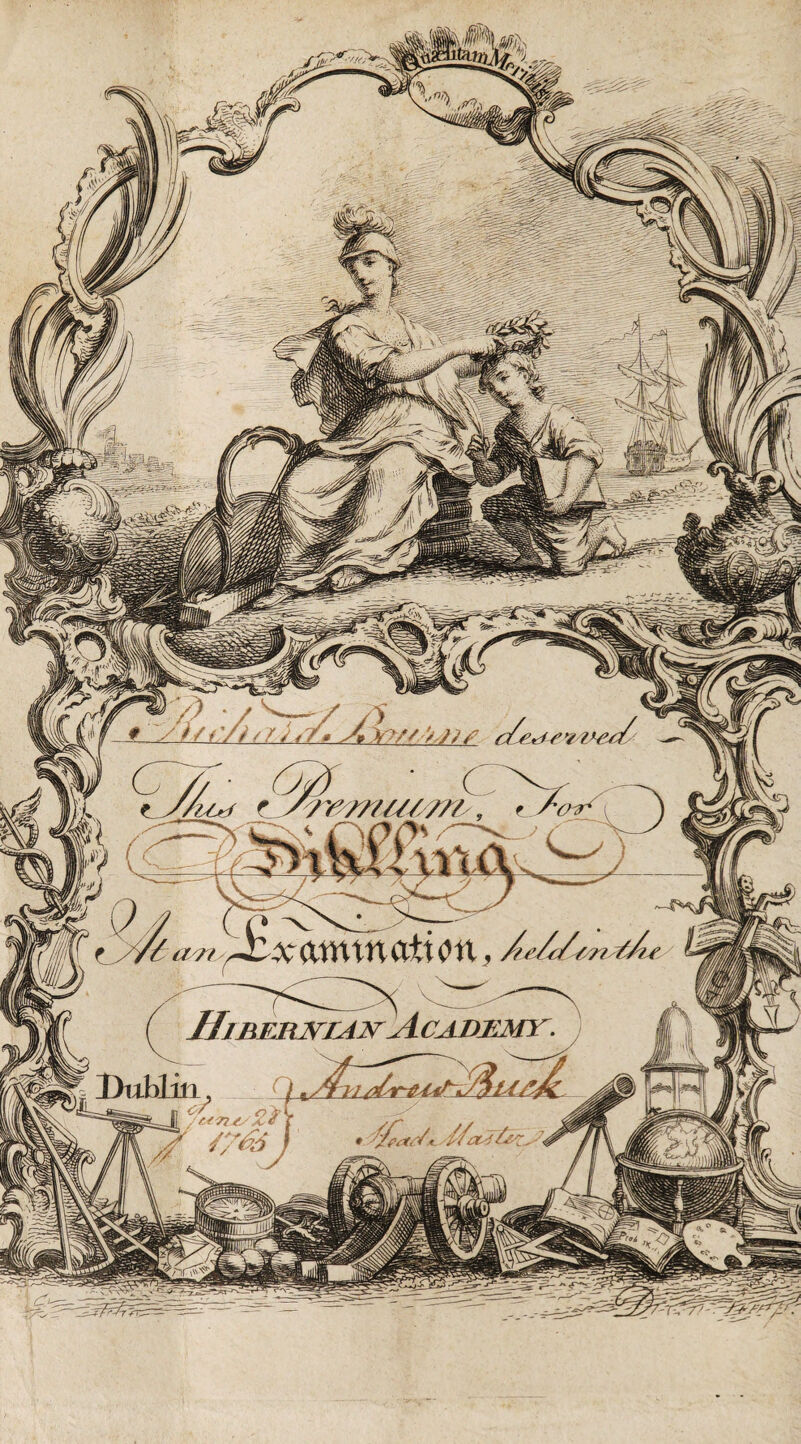 Quæsitam Meritis
Richard Bourne deserved
This Premium, For
Dialling
At an Examination, held in the
HIBERNIAN ACADEMY.
Dublin, Andrew Buck
June 28
1765
Head Master
Prob IX